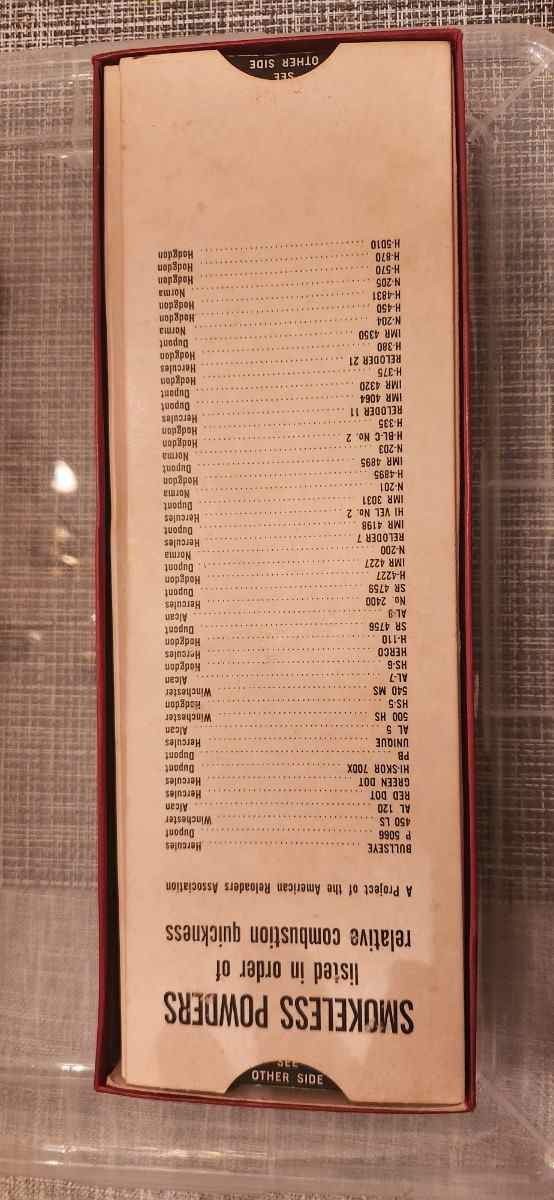 SEE
OTHER SIDE
SMOKELESS POWDERS
listed in order of
relative combustion quickness
A Project of the American Reloaders Association
BULLSEYE Hercules
P 5066 Dupont
450 LS Winchester
AL 120 Alcan
RED DOT Hercules
GREEN DOT Hercules
HI-SKOR 700X Dupont
PB Dupont
UNIQUE Hercules
AL 5 Alcan
500 HS Winchester
HS-5 Hodgdon
540 MS Winchester
AL-7 Alcan
HS-6 Hodgdon
HERCO Hercules
H-110 Hodgdon
SR 4756 Dupont
AL-9 Alcan
No. 2400 Hercules
SR 4759 Dupont
H-4227 Hodgdon
IMR 4227 Dupont
N-200 Norma
RELODER 7 Hercules
IMR 4198 Dupont
HI VEL No. 2 Hercules
IMR 3031 Dupont
N-201 Norma
H-4895 Hodgdon
IMR 4895 Dupont
N-203 Norma
H-BL-C No. 2 Hodgdon
H-335 Hodgdon
RELODER 11 Hercules
IMR 4064 Dupont
IMR 4320 Dupont
H-375 Hodgdon
RELODER 21 Hercules
H-380 Hodgdon
IMR 4350 Dupont
N-204 Norma
H-450 Hodgdon
H-4831 Hodgdon
N-205 Norma
H-570 Hodgdon
H-870 Hodgdon
H-5010 Hodgdon
SEE
OTHER SIDE